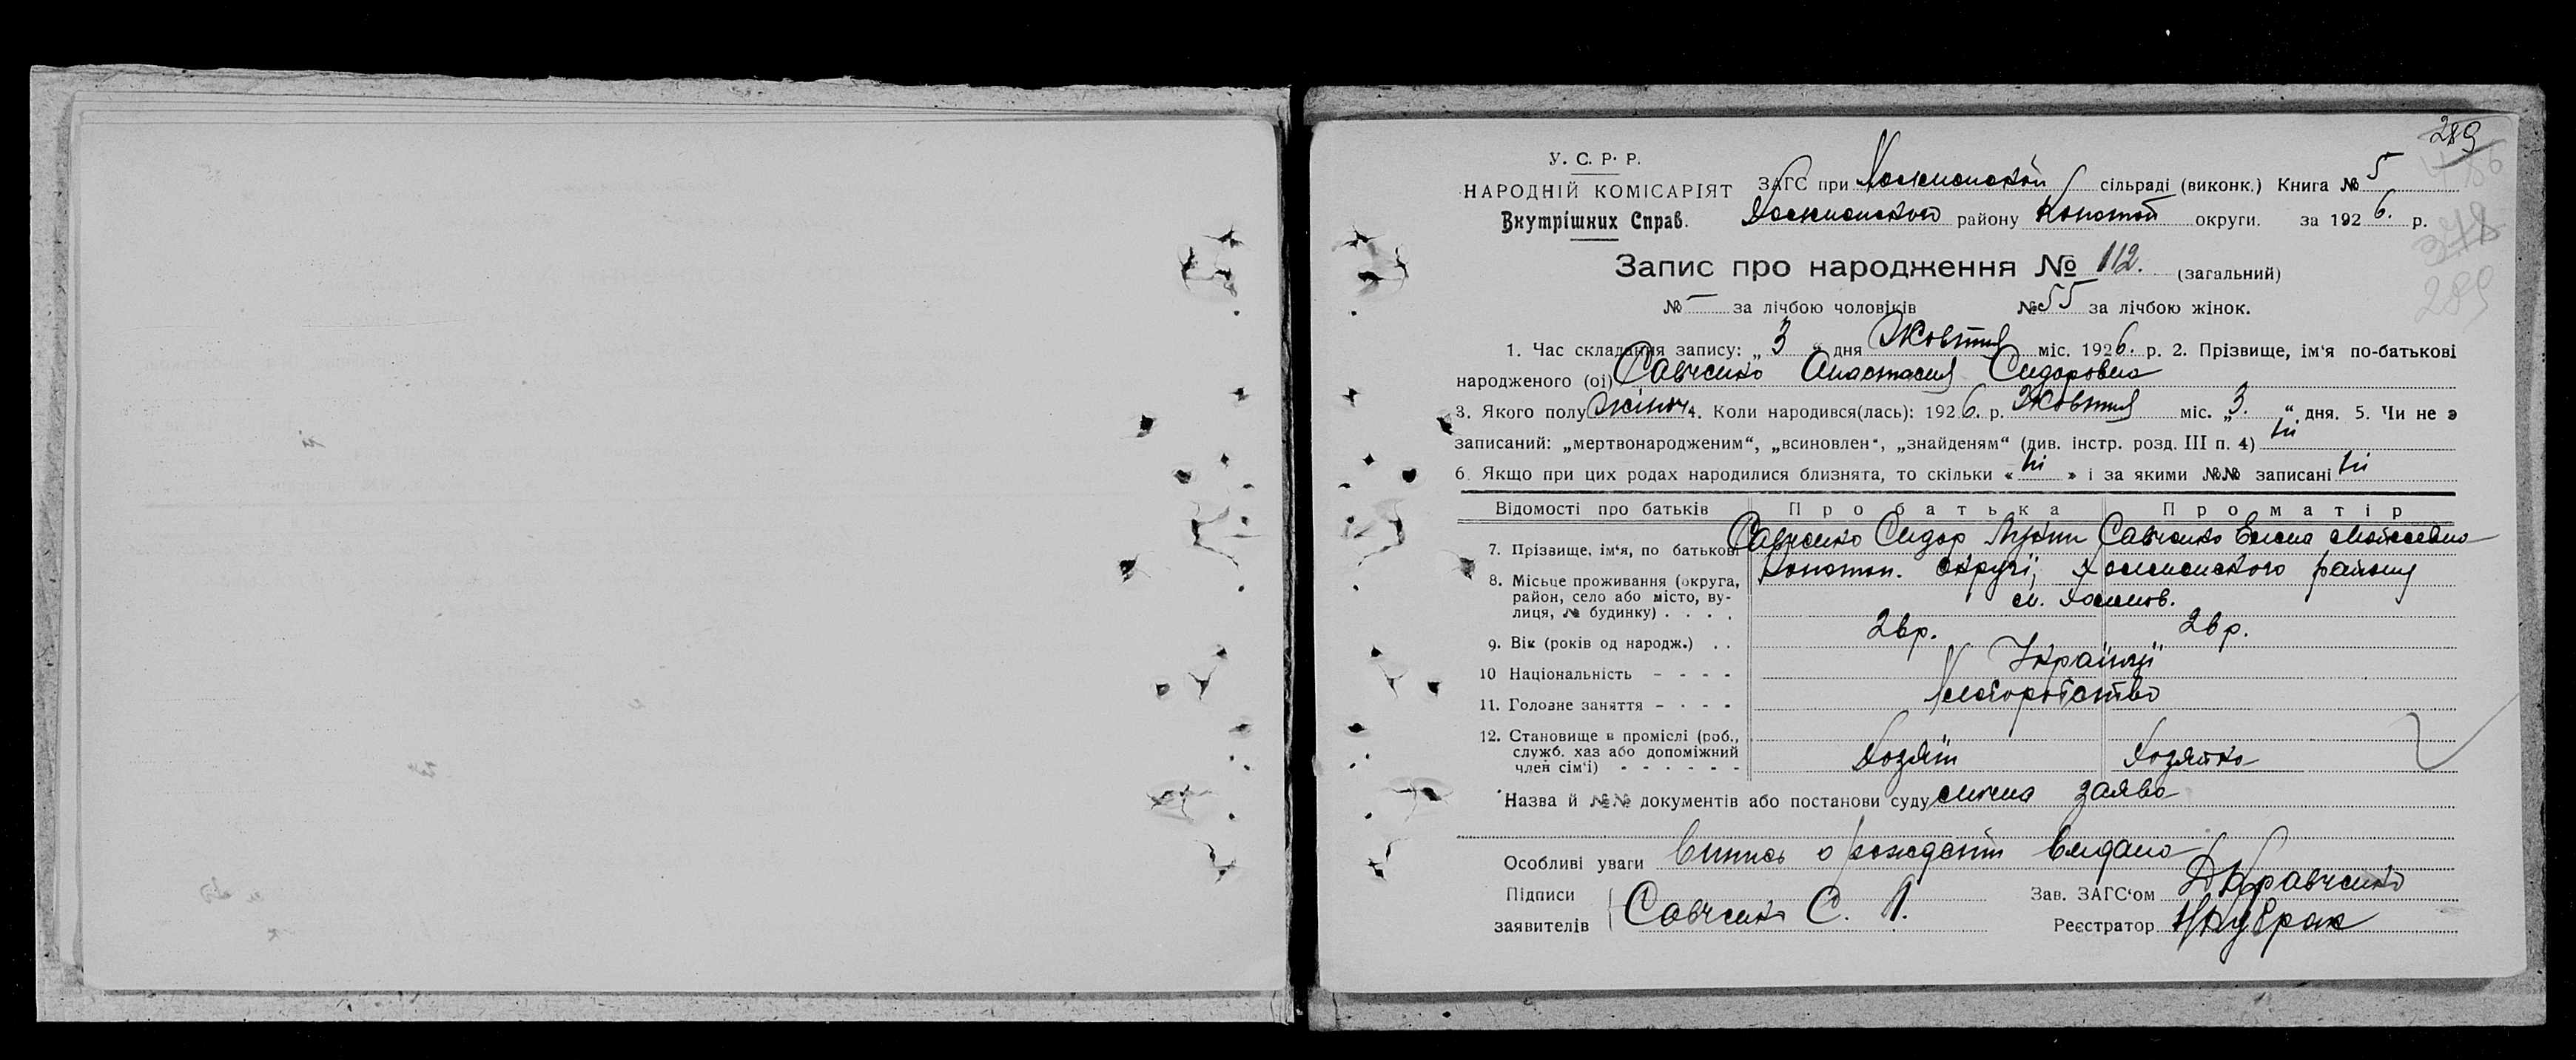 289
У. С. Р. Р.
НАРОДНІЙ КОМІСАРІЯТ
Внутрішних Справ.
ЗАГС при Хоминській сільраді (виконк.) Книга № 5
района Конотоп округи. за 1926. р.
378
289
Запис про народження № 112. (загальний)
№ — за лічбою чоловіків № 55 за лічбою жінок.
1. Час складання запису: „ 3 “ дня Жовтня міс. 1926. р. 2. Прізвище, ім'я по-батькові
народженого (ої) Савченко Анастасия Сидоровна
3. Якого полу жіноч 4. Коли народився(лась): 1926. р. Жовтня міс. „ 3. “ дня. 5. Чи не э
записаний: „мертвонародженим“, „всиновлен“, „знайденям“ (див. інстр. розд. III п. 4) ні
6. Якщо при цих родах народилися близнята, то скільки « ні » і за якими №№ записані ні
Відомості про батьків Про батька Про матір
7. Прізвище, ім'я, по батькові Савченко Сидор Савченко Елена Мойсеевна
8. Місьце проживання (округа, район, село або місто, вулиця, № будинку) . . . . Конотоп. округи, району
9. Вік (років од народж.) . . 26р. 26 р.
10 Національність - - - - Українці
11. Головне заняття - - - - Хлеборобство
12. Становище в промислі (роб., служб. хаз або допоміжний член сім'ї) - - - - - - Хозяїн Хозяйка
Назва й №№ документів або постанови суду слична заява
Особливі уваги Випись о рождении видана
Підписи
заявителів Савченко С. Л.
Зав. ЗАГС'ом Кравченко
Реєстратор